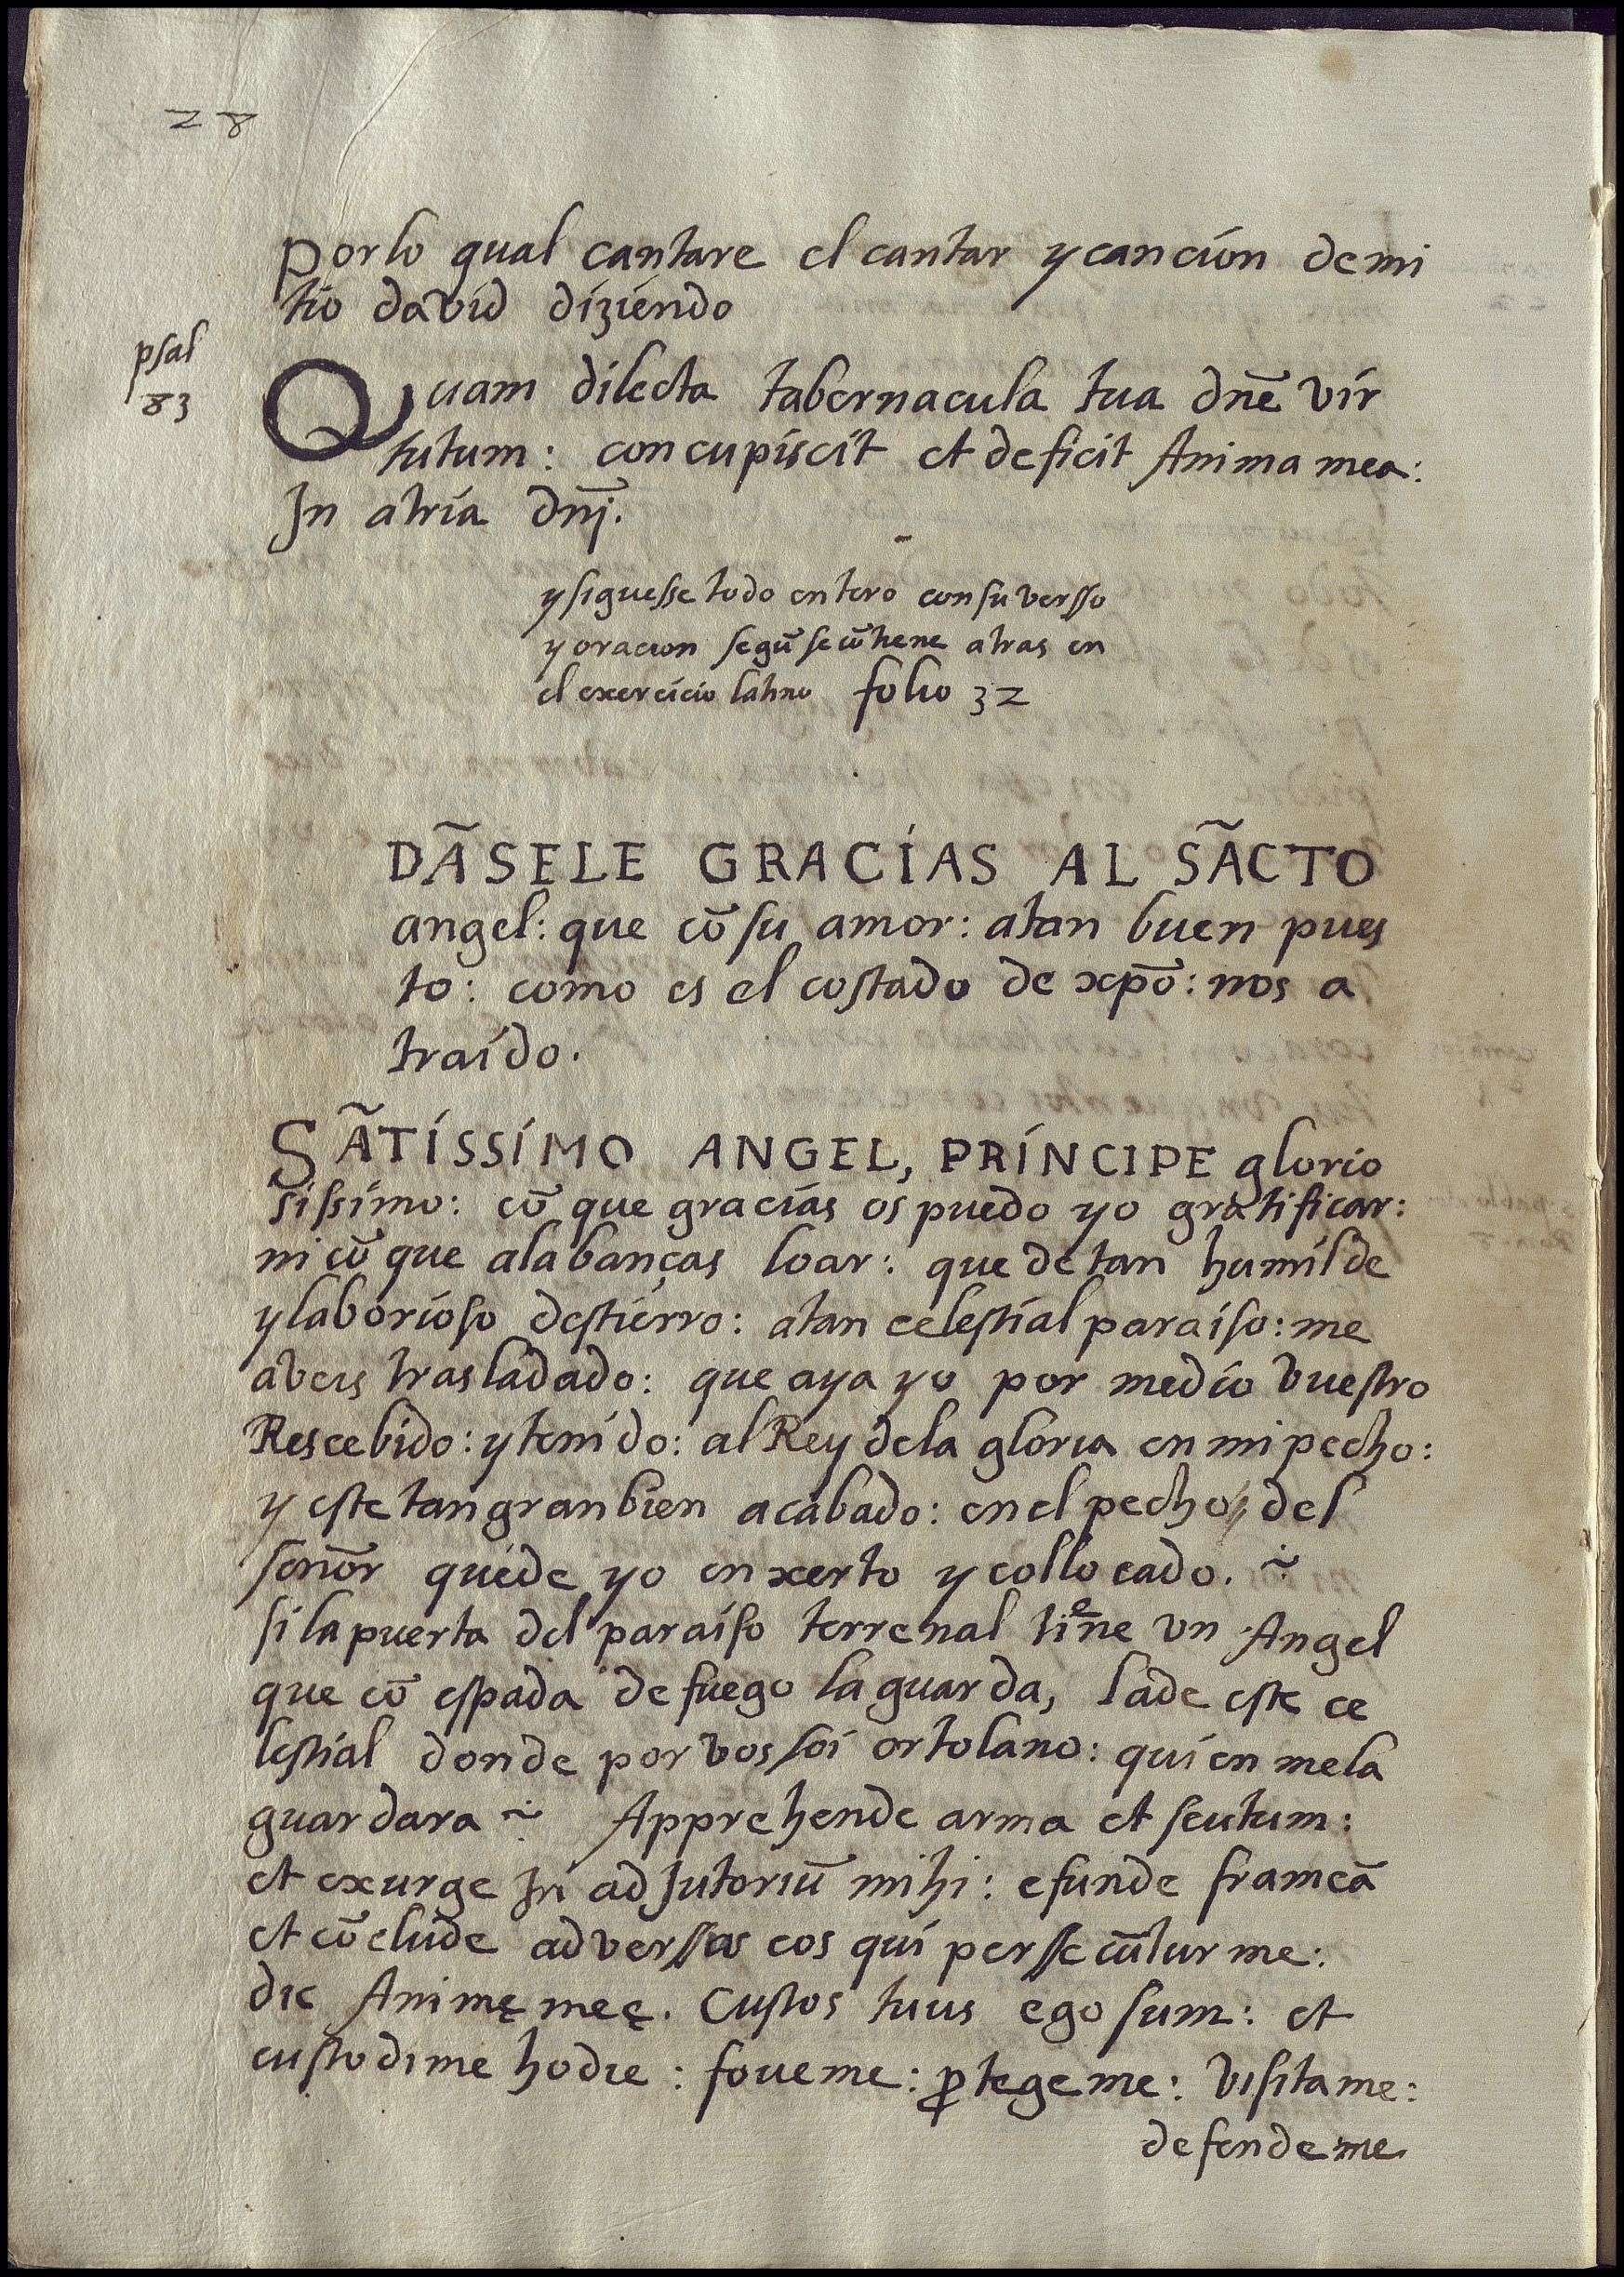 28
por lo qual cantare el cantar y cancion de mi
tio david diziendo
psal
83
Quam dilecta tabernacula tua dñe vir
tutum: concupiscit et deficit Anima mea:
In atria dñj.
y siguesse todo entero con su versso
y oracion segũ se cõtiene atras en
el exercicio latino folio 32
DÃSELE GRACIAS AL SÃCTO
angel: que cõ su amor: a tan buen pues
to: como es el costado de xp̃o: nos a
traido.
SÃTISSIMO ANGEL, PRINCIPE glorio
sissimo: cõ que gracias os puedo yo gratificar:
ni cõ que alabanças loar: que de tan humilde
y laborioso destierro: a tan celestial paraiso: me
aveis trasladado: que aya yo por medio vuestro
Rescebido: y tenido: al Rey dela gloria en mi pecho:
y este tan gran bien acabado: en el pecho del
señor quede yo enxerto y collocado.
si la puerta del paraiso terrenal tiene vn Angel
que cõ espada de fuego la guarda, la de este ce
lestial donde por vos soi ortolano: quien me la
guardara ~ Apprehende arma et scutum:
et exurge In adJutoriũ mihi: efunde frameã
et cõclude adverssus eos qui perssecũtur me:
dic Animę meę. Custos tuus ego sum: et
custodi me hodie: foue me: ꝓtege me: visita me:
defende me